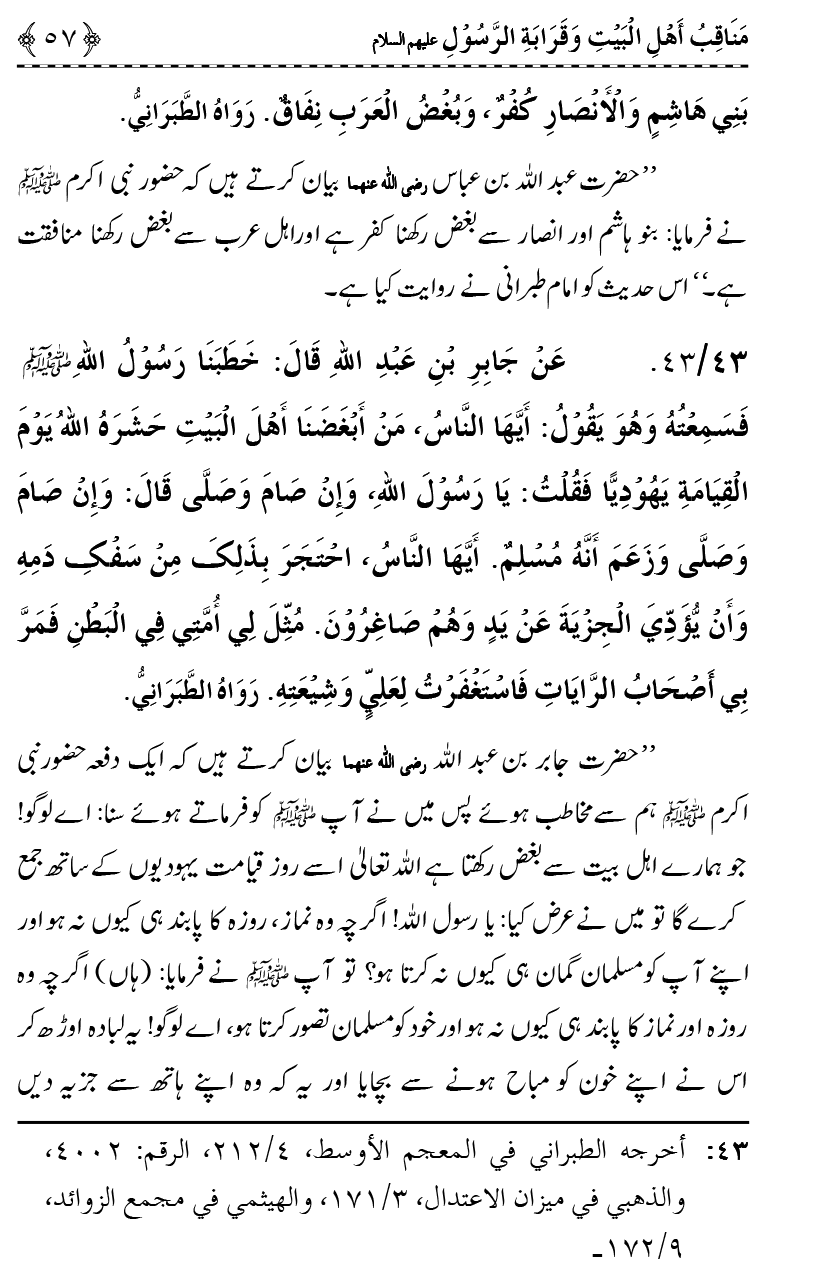 مَنَاقِبُ أَهْلِ الْبَيْتِ وَقَرَابَةِ الرَّسُوْلِ علیہم السلام ﴿٥٧﴾
بَنِي هَاشِمٍ وَالْأَنْصَارِ كُفْرٌ، وَبُغْضُ الْعَرَبِ نِفَاقٌ. رَوَاهُ الطَّبَرَانِيُّ.
’’حضرت عبد اللہ بن عباس رضی اللہ عنہما بیان کرتے ہیں کہ حضور نبی اکرم ﷺ
نے فرمایا: بنو ہاشم اور انصار سے بغض رکھنا کفر ہے اور اہل عرب سے بغض رکھنا منافقت
ہے۔‘‘ اس حدیث کو امام طبرانی نے روایت کیا ہے۔
٤٣/٤٣. عَنْ جَابِرِ بْنِ عَبْدِ اللهِ قَالَ: خَطَبَنَا رَسُوْلُ اللهِ ﷺ
فَسَمِعْتُهُ وَهُوَ يَقُوْلُ: أَيُّهَا النَّاسُ، مَنْ أَبْغَضَنَا أَهْلَ الْبَيْتِ حَشَرَهُ اللهُ يَوْمَ
الْقِيَامَةِ يَهُوْدِيًّا فَقُلْتُ: يَا رَسُوْلَ اللهِ، وَإِنْ صَامَ وَصَلَّى قَالَ: وَإِنْ صَامَ
وَصَلَّى وَزَعَمَ أَنَّهُ مُسْلِمٌ. أَيُّهَا النَّاسُ، احْتَجَرَ بِذَلِكَ مِنْ سَفْكِ دَمِهِ
وَأَنْ يُّؤَدِّيَ الْجِزْيَةَ عَنْ يَدٍ وَهُمْ صَاغِرُوْنَ. مُثِّلَ لِي أُمَّتِي فِي الْبَطْنِ فَمَرَّ
بِي أَصْحَابُ الرَّايَاتِ فَاسْتَغْفَرْتُ لِعَلِيٍّ وَشِيْعَتِهِ. رَوَاهُ الطَّبَرَانِيُّ.
’’حضرت جابر بن عبد اللہ رضی اللہ عنہما بیان کرتے ہیں کہ ایک دفعہ حضور نبی
اکرم ﷺ ہم سے مخاطب ہوئے پس میں نے آپ ﷺ کو فرماتے ہوئے سنا: اے لوگو!
جو ہمارے اہل بیت سے بغض رکھتا ہے اللہ تعالیٰ اسے روز قیامت یہودیوں کے ساتھ جمع
کرے گا تو میں نے عرض کیا: یا رسول اللہ! اگرچہ وہ نماز، روزہ کا پابند ہی کیوں نہ ہو اور
اپنے آپ کو مسلمان گمان ہی کیوں نہ کرتا ہو؟ تو آپ ﷺ نے فرمایا: (ہاں) اگرچہ وہ
روزہ اور نماز کا پابند ہی کیوں نہ ہو اور خود کو مسلمان تصور کرتا ہو، اے لوگو! یہ لبادہ اوڑھ کر
اس نے اپنے خون کو مباح ہونے سے بچایا اور یہ کہ وہ اپنے ہاتھ سے جزیہ دیں
٤٣: أخرجه الطبراني في المعجم الأوسط، ٢١٢/٤، الرقم: ٤٠٠٢،
والذهبي في ميزان الاعتدال، ١٧١/٣، والهيثمي في مجمع الزوائد،
١٧٢/٩۔